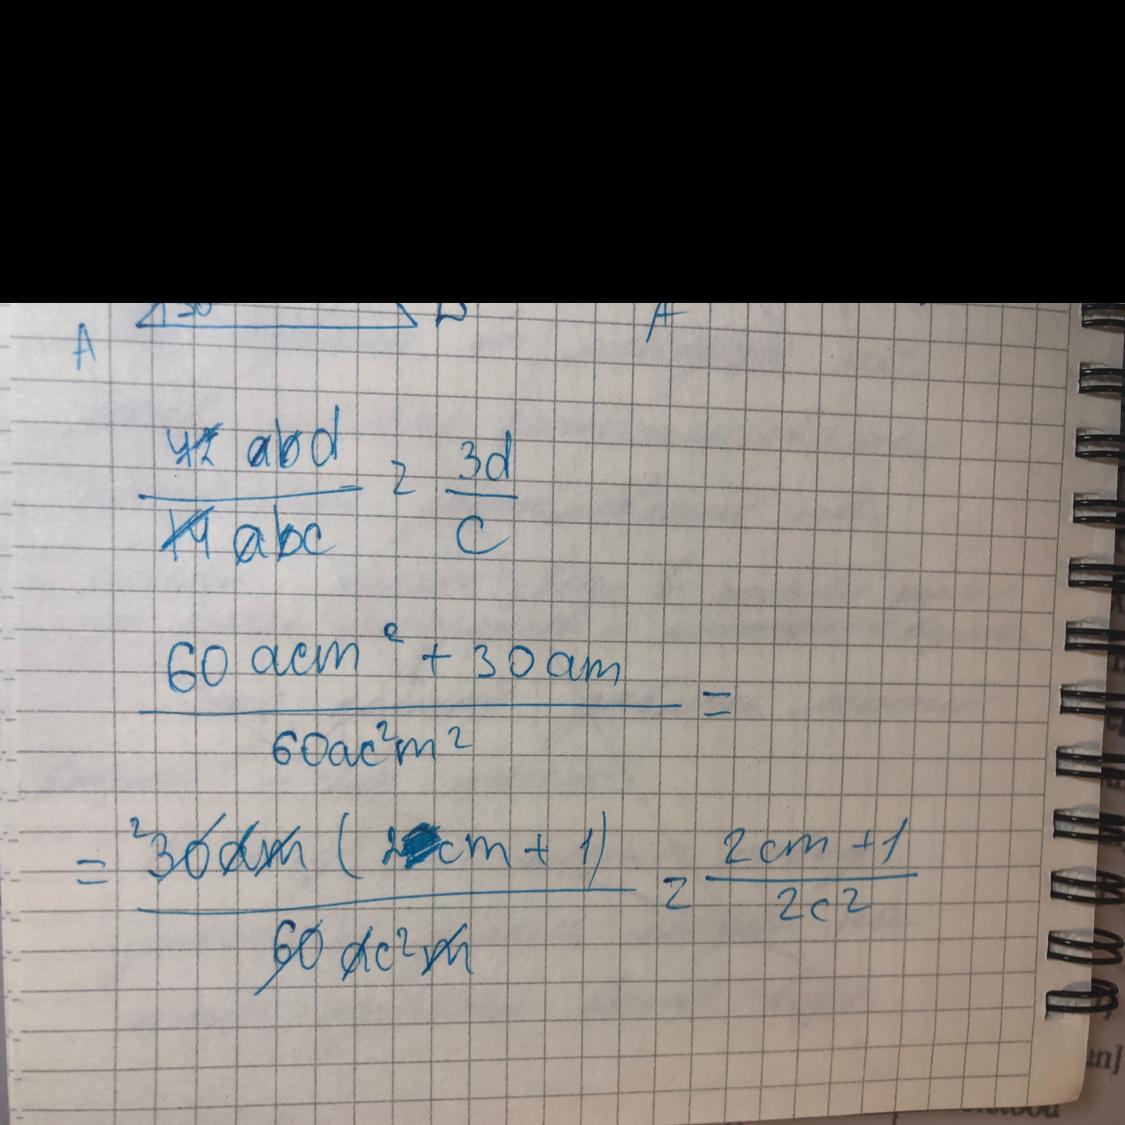 30
A
A
42 abd / 14 abc = 3d / c
60 acm² + 30 am / 60ac²m² =
= ² 30am (2cm + 1) / 60 ac²m = 2cm + 1 / 2c²